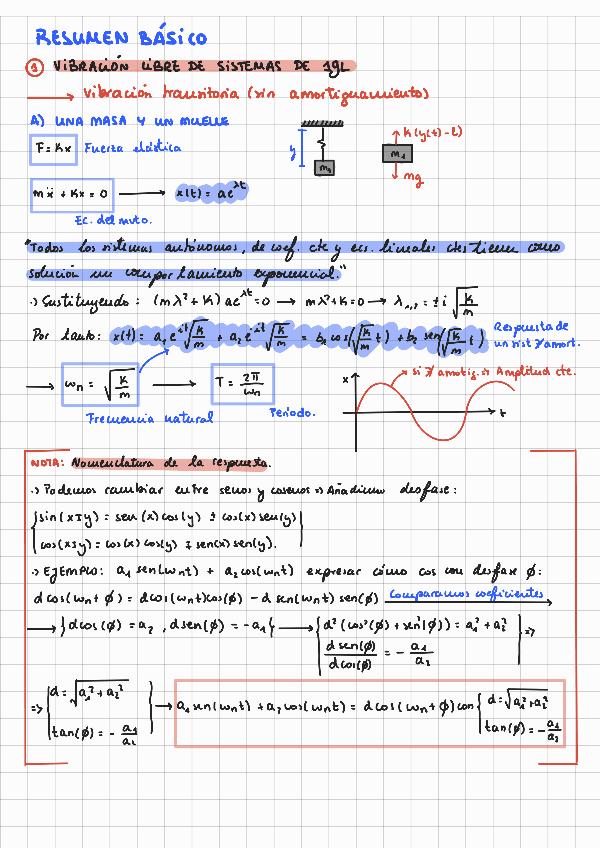 RESUMEN BÁSICO
1 VIBRACIÓN LIBRE DE SISTEMAS DE 1gL
→ Vibración transitoria (sin amortiguamiento)
A) UNA MASA Y UN MUELLE
F = Kx Fuerza elástica
y m₁ K(y(t) - l) m₁ mg
mẍ + Kx = 0 → x(t) = a e^λt
Ec. del mvto.
"Todos los sistemas autónomos, de coef. cte y ecs. lineales ctes tienen como
solución un comportamiento exponencial."
·) Sustituyendo: (mλ² + K) a e^λt = 0 → mλ² + K = 0 → λ₁,₂ = ± i √(K/m)
Por tanto: x(t) = a₁ e^(it√(K/m)) + a₂ e^(-it√(K/m)) = b₁ cos(√(K/m) t) + b₂ sen(√(K/m) t)
Respuesta de
un sist ∄ amort.
→ ωn = √(K/m) → T = 2π/ωn
Frecuencia natural Período.
x t si ∄ amortig. ⇒ Amplitud cte.
NOTA: Nomenclatura de la respuesta.
·) Podemos cambiar entre senos y cosenos ⇒ Añadimos desfase:
sin(x±y) = sen(x)cos(y) ± cos(x)sen(y)
cos(x±y) = cos(x)cos(y) ∓ sen(x)sen(y).
·) EJEMPLO: a₁ sen(ωnt) + a₂ cos(ωnt) expresar cómo cos con desfase ϕ:
d cos(ωn t + ϕ) = d cos(ωnt)cos(ϕ) - d sen(ωnt) sen(ϕ) Comparamos coeficientes
→ { d cos(ϕ) = a₂ , d sen(ϕ) = -a₁ } → { d² (cos²(ϕ) + sen²(ϕ)) = a₁² + a₂² ⇒
d sen(ϕ)/d cos(ϕ) = - a₁/a₂
⇒ { d = √(a₁² + a₂²)
tan(ϕ) = - a₁/a₂
→ a₁ sen(ωnt) + a₂ cos(ωnt) = d cos(ωn t + ϕ) con { d = √(a₁² + a₂²)
tan(ϕ) = - a₁/a₂